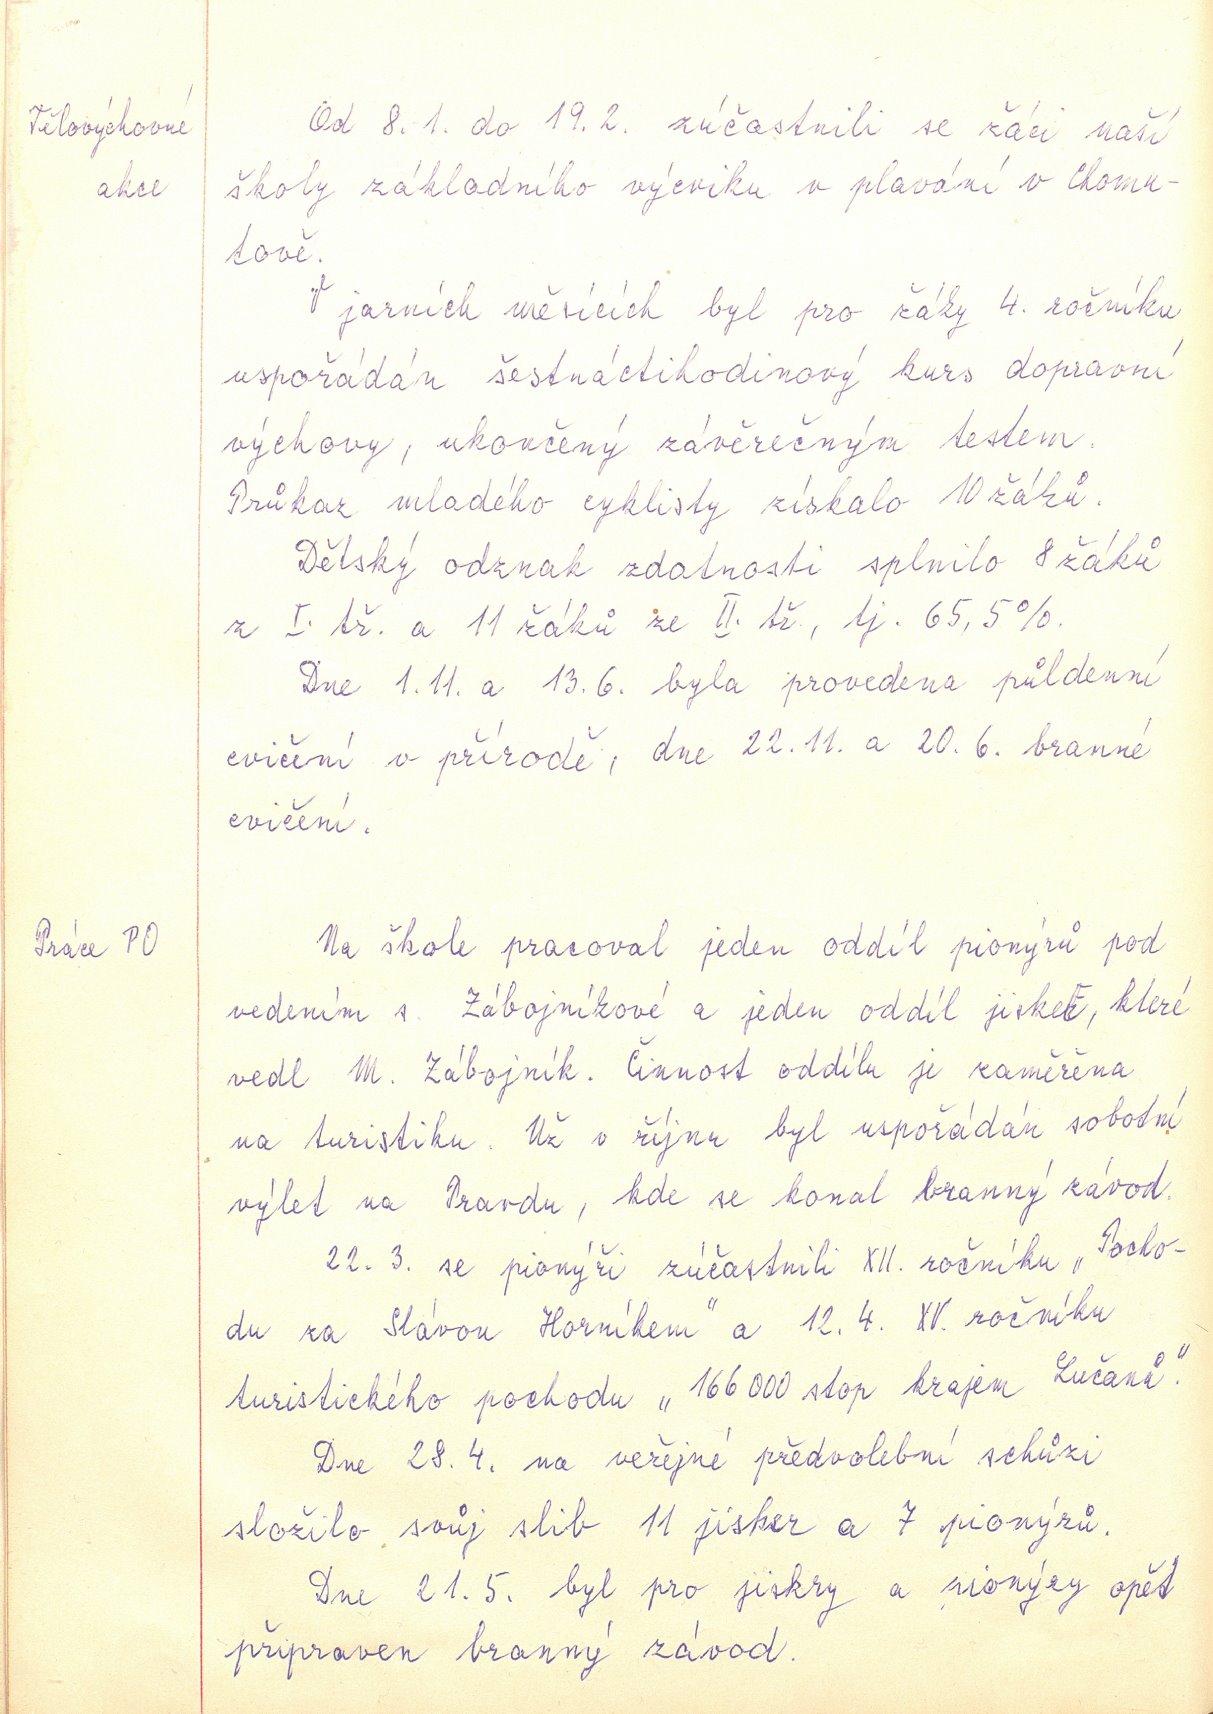 Tělovýchovné
akce
Od 8. 1. do 19. 2. zúčastnili se žáci naší
školy základního výcviku v plavání v Chomu-
tově.
V jarních měsících byl pro žáky 4. ročníku
uspořádán šestnáctihodinový kurs dopravní
výchovy, ukončený závěrečným testem.
Průkaz mladého cyklisty získalo 10 žáků.
Dětský odznak zdatnosti splnilo 8 žáků
z I. tř. a 11 žáků ze II. tř., tj. 65,5%.
Dne 1. 11. a 13. 6. byla provedena půldenní
cvičení v přírodě, dne 22. 11. a 20. 6. branné
cvičení.
Práce PO
Na škole pracoval jeden oddíl pionýrů pod
vedením s. Zábojníkové a jeden oddíl jisker, které
vedl M. Zábojník. Činnost oddílu je zaměřena
na turistiku. Už v říjnu byl uspořádán sobotní
výlet na Pravdu, kde se konal branný závod.
22. 3. se pionýři zúčastnili XII. ročníku „Pocho-
du za Slávou Horníkem" a 12. 4. XV. ročníku
turistického pochodu „166 000 stop krajem Lučanů".
Dne 28. 4. na veřejné předvolební schůzi
složilo svůj slib 11 jisker a 7 pionýrů.
Dne 21. 5. byl pro jiskry a pionýry opět
připraven branný závod.